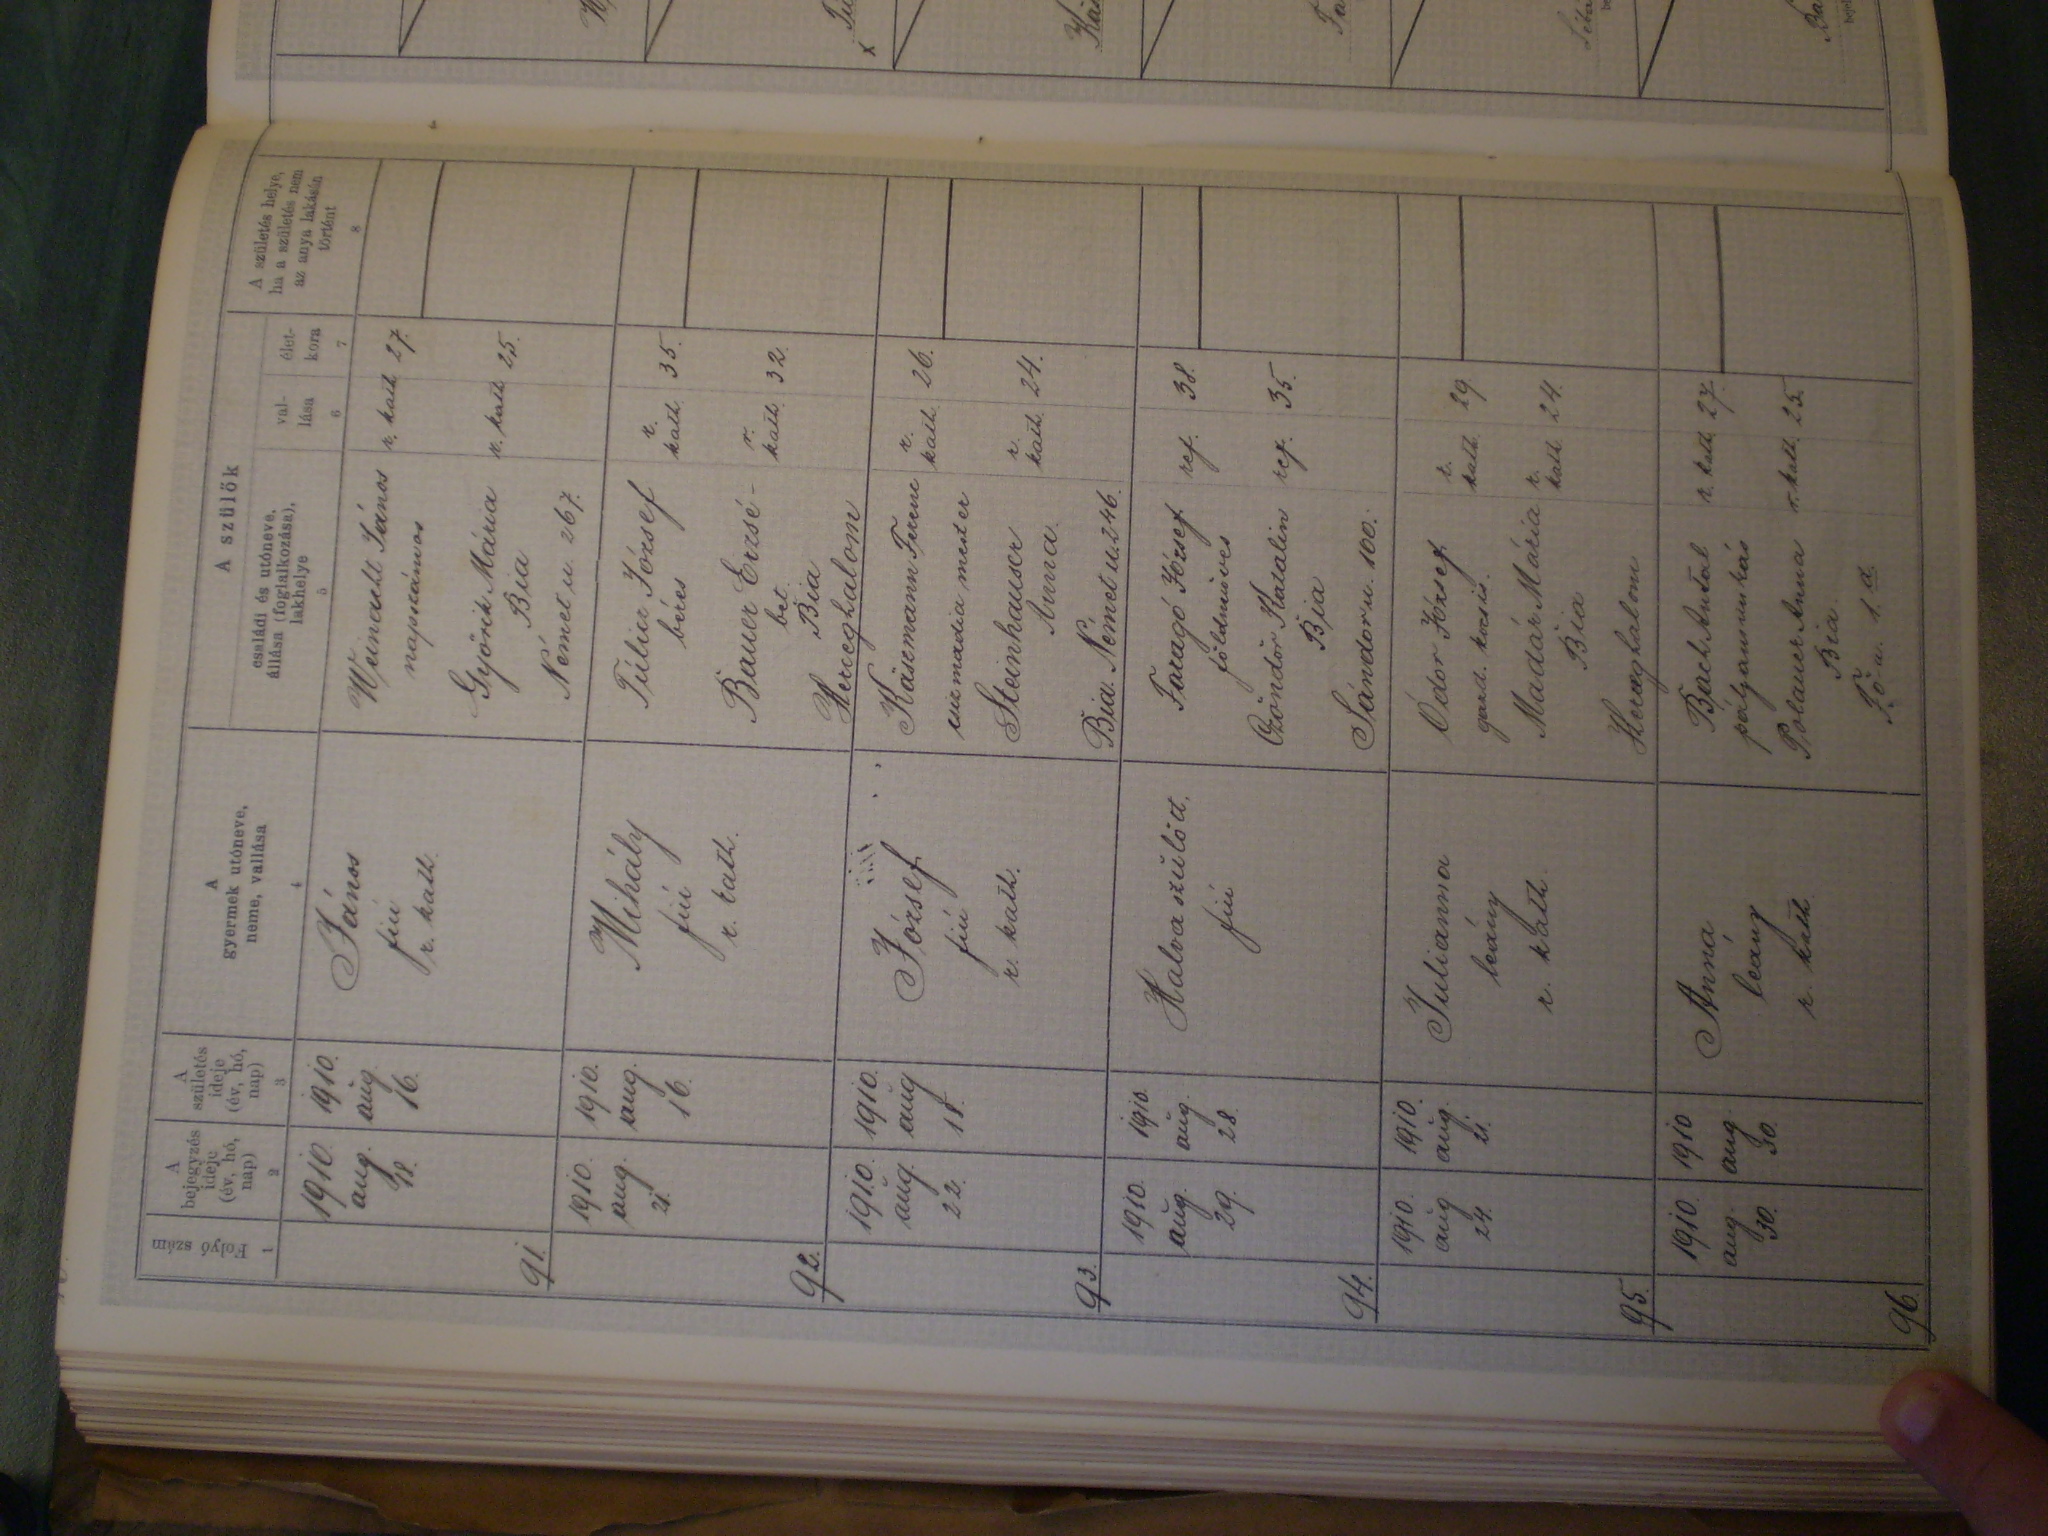 Folyó szám
1
A
bejegyzés
ideje
(év, hó,
nap)
2
A
születés
ideje
(év, hó,
nap)
3
A
gyermek utóneve,
neme, vallása
4
A szülők
családi és utóneve,
állása (foglalkozása),
lakhelye
5
val-
lása
6
élet-
kora
7
A születés helye,
ha a születés nem
az anya lakásán
történt
8
91.
1910.
aug.
18.
1910.
aug
16.
János
fiú
r. kath.
Weinacht János
napszámos
r. kath 27.
Györik Mária
r. kath 25.
Bia
Német u. 267.
92.
1910.
aug.
21.
1910.
aug.
16.
Mihály
fiú
r. kath.
Túliur József
béres
r.
kath. 35.
Bauer Erzsé-
bet
r.
kath. 32.
Bia
Herceghalom
93.
1910.
aug.
22.
1910.
aug
18.
József
fiú
r. kath.
Käsemann Ferenc
cizmadia mester
r.
kath. 26.
Steinhauser
Anna
r.
kath. 24.
Bia. Német u. 246.
94.
1910.
aug.
29.
1910.
aug.
28.
Halva szülött.
fiú
Faragó József
földműves
ref. 38.
Czöndör Katalin
ref. 35.
Bia
Sándor u. 100.
95.
1910.
aug
24.
1910.
aug.
21.
Julianna
leány
r. kath.
Ódor József
gazd. kocsis.
r.
kath. 29
Madár Mária
r.
kath 24.
Bia
Herceghalom
96.
1910.
aug.
30.
1910
aug.
30.
Anna
leány
r. kath
Bach Antal
pályamunkás
r. kath 27.
Polauer Anna
r. kath. 25.
Bia.
Fő u. 1. a.